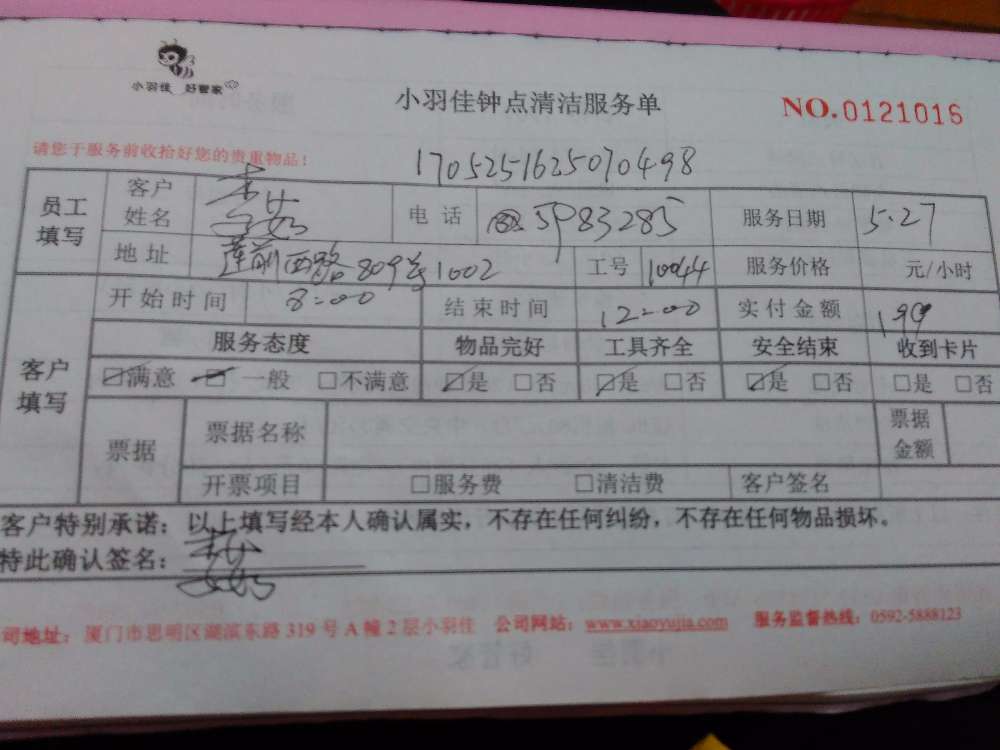 小羽佳 好管家
小羽佳钟点清洁服务单
NO.0121016
请您于服务前收拾好您的贵重物品！
1705251625070498
员工填写
客户姓名
电话 5983285
服务日期 5.27
地址 莲前西路809号1002
工号 10044
服务价格 元/小时
客户填写
开始时间 8:00
结束时间 12:00
实付金额 199
服务态度 物品完好 工具齐全 安全结束 收到卡片
☑满意 ☑一般 □不满意 ☑是 □否 ☑是 □否 ☑是 □否 □是 □否
票据
票据名称
票据金额
开票项目 □服务费 □清洁费 客户签名
客户特别承诺：以上填写经本人确认属实，不存在任何纠纷，不存在任何物品损坏。
特此确认签名：
司地址：厦门市思明区湖滨东路319号A幢2层小羽佳 公司网站：www.xiaoyujia.com 服务监督热线：0592-5888123